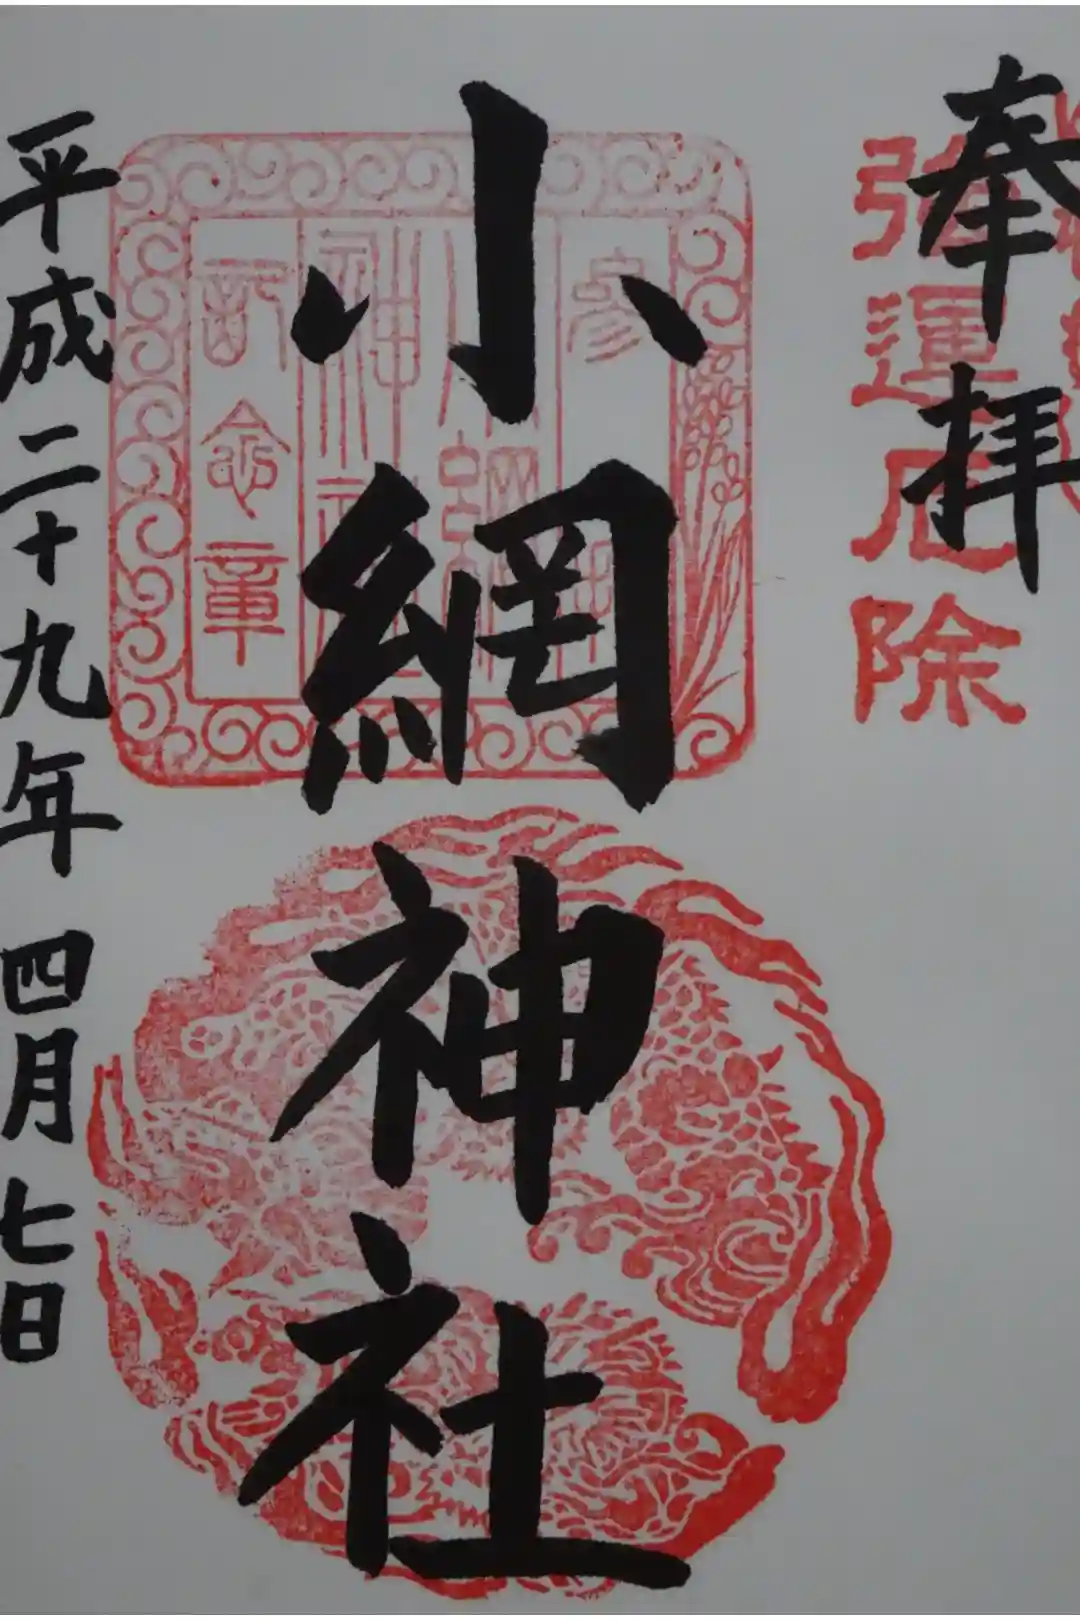 奉拝
強運厄除
小網神社
参拝
小網
神社
記念章
平成二十九年四月七日